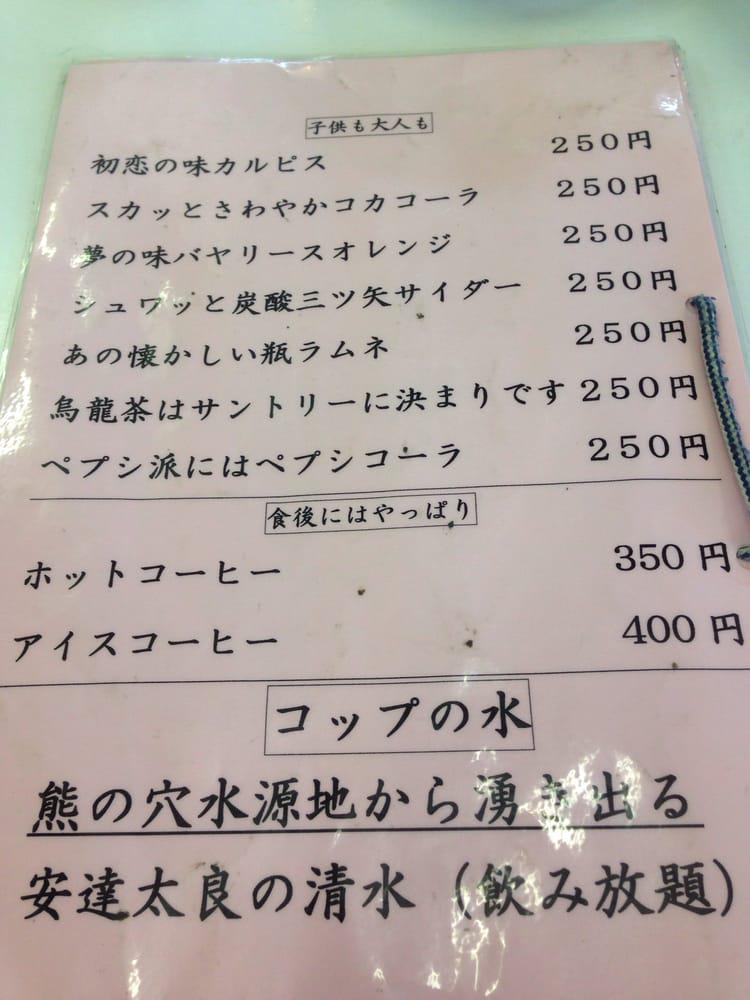 子供も大人も
初恋の味カルピス 250円
スカッとさわやかコカコーラ 250円
夢の味バヤリースオレンジ 250円
シュワッと炭酸三ツ矢サイダー 250円
あの懐かしい瓶ラムネ 250円
烏龍茶はサントリーに決まりです 250円
ペプシ派にはペプシコーラ 250円
食後にはやっぱり
ホットコーヒー 350円
アイスコーヒー 400円
コップの水
熊の穴水源地から湧き出る
安達太良の清水（飲み放題）